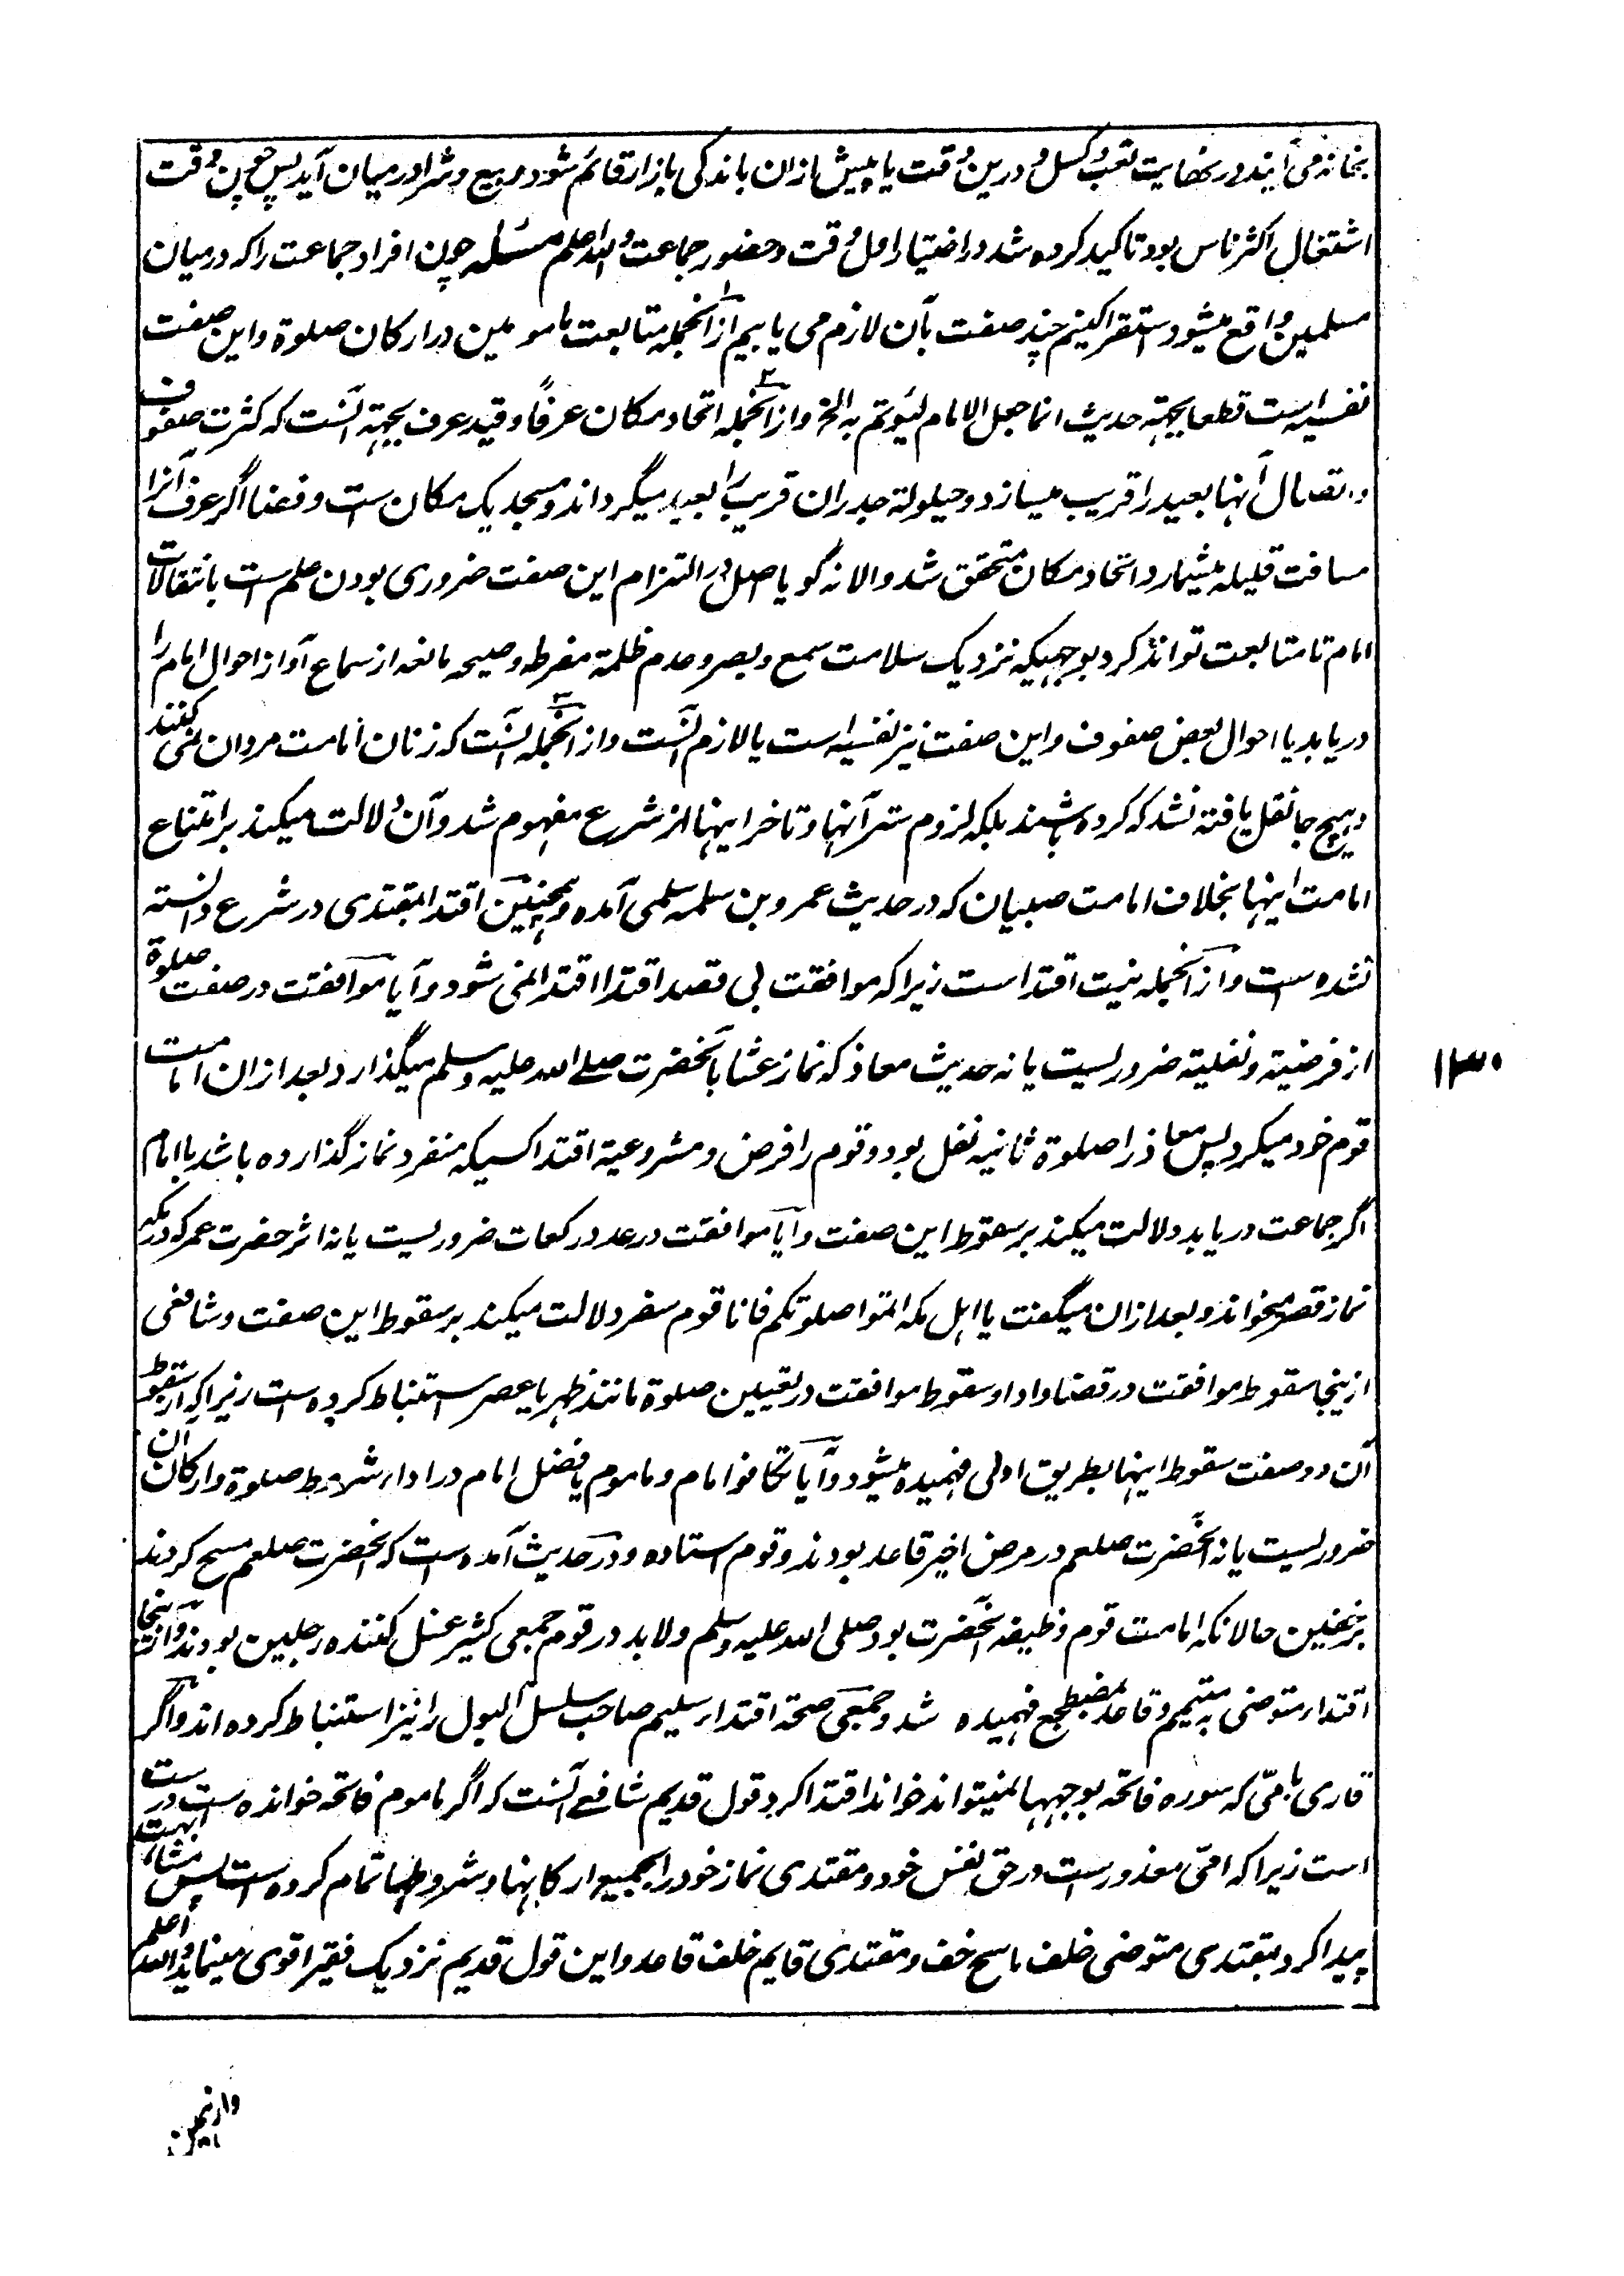 بخانه می آیند در نهایت تعب و کسل و درین وقت یا پیش ازان باندکی بازار قائم شود و بیع و شرا در میان آید پس چون وقت
اشتغال اکثر ناس بود تاکید کرده شد در اختیار اول وقت و حضور جماعت والله اعلم مسئله چون افراد جماعت را که در میان
مسلمین واقع میشود استقرا کنیم چند صفت بآن لازم می یابیم ازانجمله متابعت مامومین در ارکان صلوة و این صفت
نفسیه است قطعا بجهة حدیث انما جعل الامام لیؤتم به الخ و ازانجمله اتحاد مکان عرفاً و قید عرف بجهة آنست که کثرت صفوف
و اتصال آنها بعید را قریب میسازد و حیلولة جدران قریب را بعید میگرداند و مسجد یک مکان ست و فضا اگر عرف آنرا
مسافت قلیله میشمارد اتحاد مکان متحقق شد والا نه گویا اصل در التزام این صفت ضروری بودن علم ست بانتقالات
امام تا متابعت تواند کرد بوجهیکه نزدیک سلامت سمع و بصر و عدم ظلمة مفرطه و صیحه مانعه از سماع آواز احوال امام را
دریابد یا احوال بعض صفوف و این صفت نیز نفسیه است یا لازم آنست و ازانجمله آنست که زنان امامت مردان نمی کنند
و هیچ جا نقل یافته نشد که کرده باشند بلکه لزوم ستر آنها و تاخر اینها از شرع مفهوم شد و آن دلالت میکند بر امتناع
امامت اینها بخلاف امامت صبیان که در حدیث عمرو بن سلمه سلمی آمده و همچنین اقتدا بمقتدی در شرع دانسته
نشده است و ازانجمله نیت اقتدا ست زیرا که موافقت بی قصد اقتدا اقتدا نمی شود و آیا موافقت در صفت صلوة
از فرضیة و نفلیة ضروریست یا نه حدیث معاذ که نماز عشا بآنحضرت صلی الله علیه وسلم میگذارد و بعد ازان امامت
قوم خود میکرد پس معاذ را صلوة ثانیه نفل بود و قوم را فرض و مشروعیة اقتدا کسیکه منفرد نماز گذارده باشد با امام
اگر جماعت دریابد دلالت میکند بر سقوط این صفت و آیا موافقت در عدد رکعات ضروریست یا نه اثر حضرت عمر که در مکه
نماز قصر میخواند و بعد ازان میگفت یا اهل مکه اتموا صلوتکم فانا قوم سفر دلالت میکند بر سقوط این صفت و شافعی
ازینجا سقوط موافقت در قضا و ادا و سقوط موافقت در تعیین صلوة مانند ظهر یا عصر استنباط کرده است زیرا که از سقوط
آن دو صفت سقوط اینها بطریق اولی فهمیده میشود و آیا تکافؤ امام و ماموم یا فضل امام در اداء شروط صلوة و ارکان آن
ضروریست یا نه آنحضرت صلعم در مرض اخیر قاعد بودند و قوم استاده و در حدیث آمده است که آنحضرت صلعم مسح کردند
بر خفین حالانکه امامت قوم وظیفه آنحضرت بود صلی الله علیه وسلم ولابد در قوم جمعی کثیر غسل کننده رجلین بودند و ازینجا
اقتداء متوضی به متیمم و قاعد مضطجع فهمیده شد و جمعی صحة اقتداء سلیم صاحب سلسل البول را نیز استنباط کرده اند و اگر
قاری بامّی که سوره فاتحه بوجهها نمیتواند خواند اقتدا کرد قول قدیم شافعے آنست که اگر ماموم فاتحه خوانده است درست
است زیرا که امّی معذورست در حق نفس خود و مقتدی نماز خود را بجمیع ارکانها و شروطها تمام کرده است پس مشابهت
پیدا کرد بمقتدی متوضی خلف ماسح خف و مقتدی قایم خلف قاعد و این قول قدیم نزدیک فقیر اقوی مینماید والله اعلم
۱۳۰